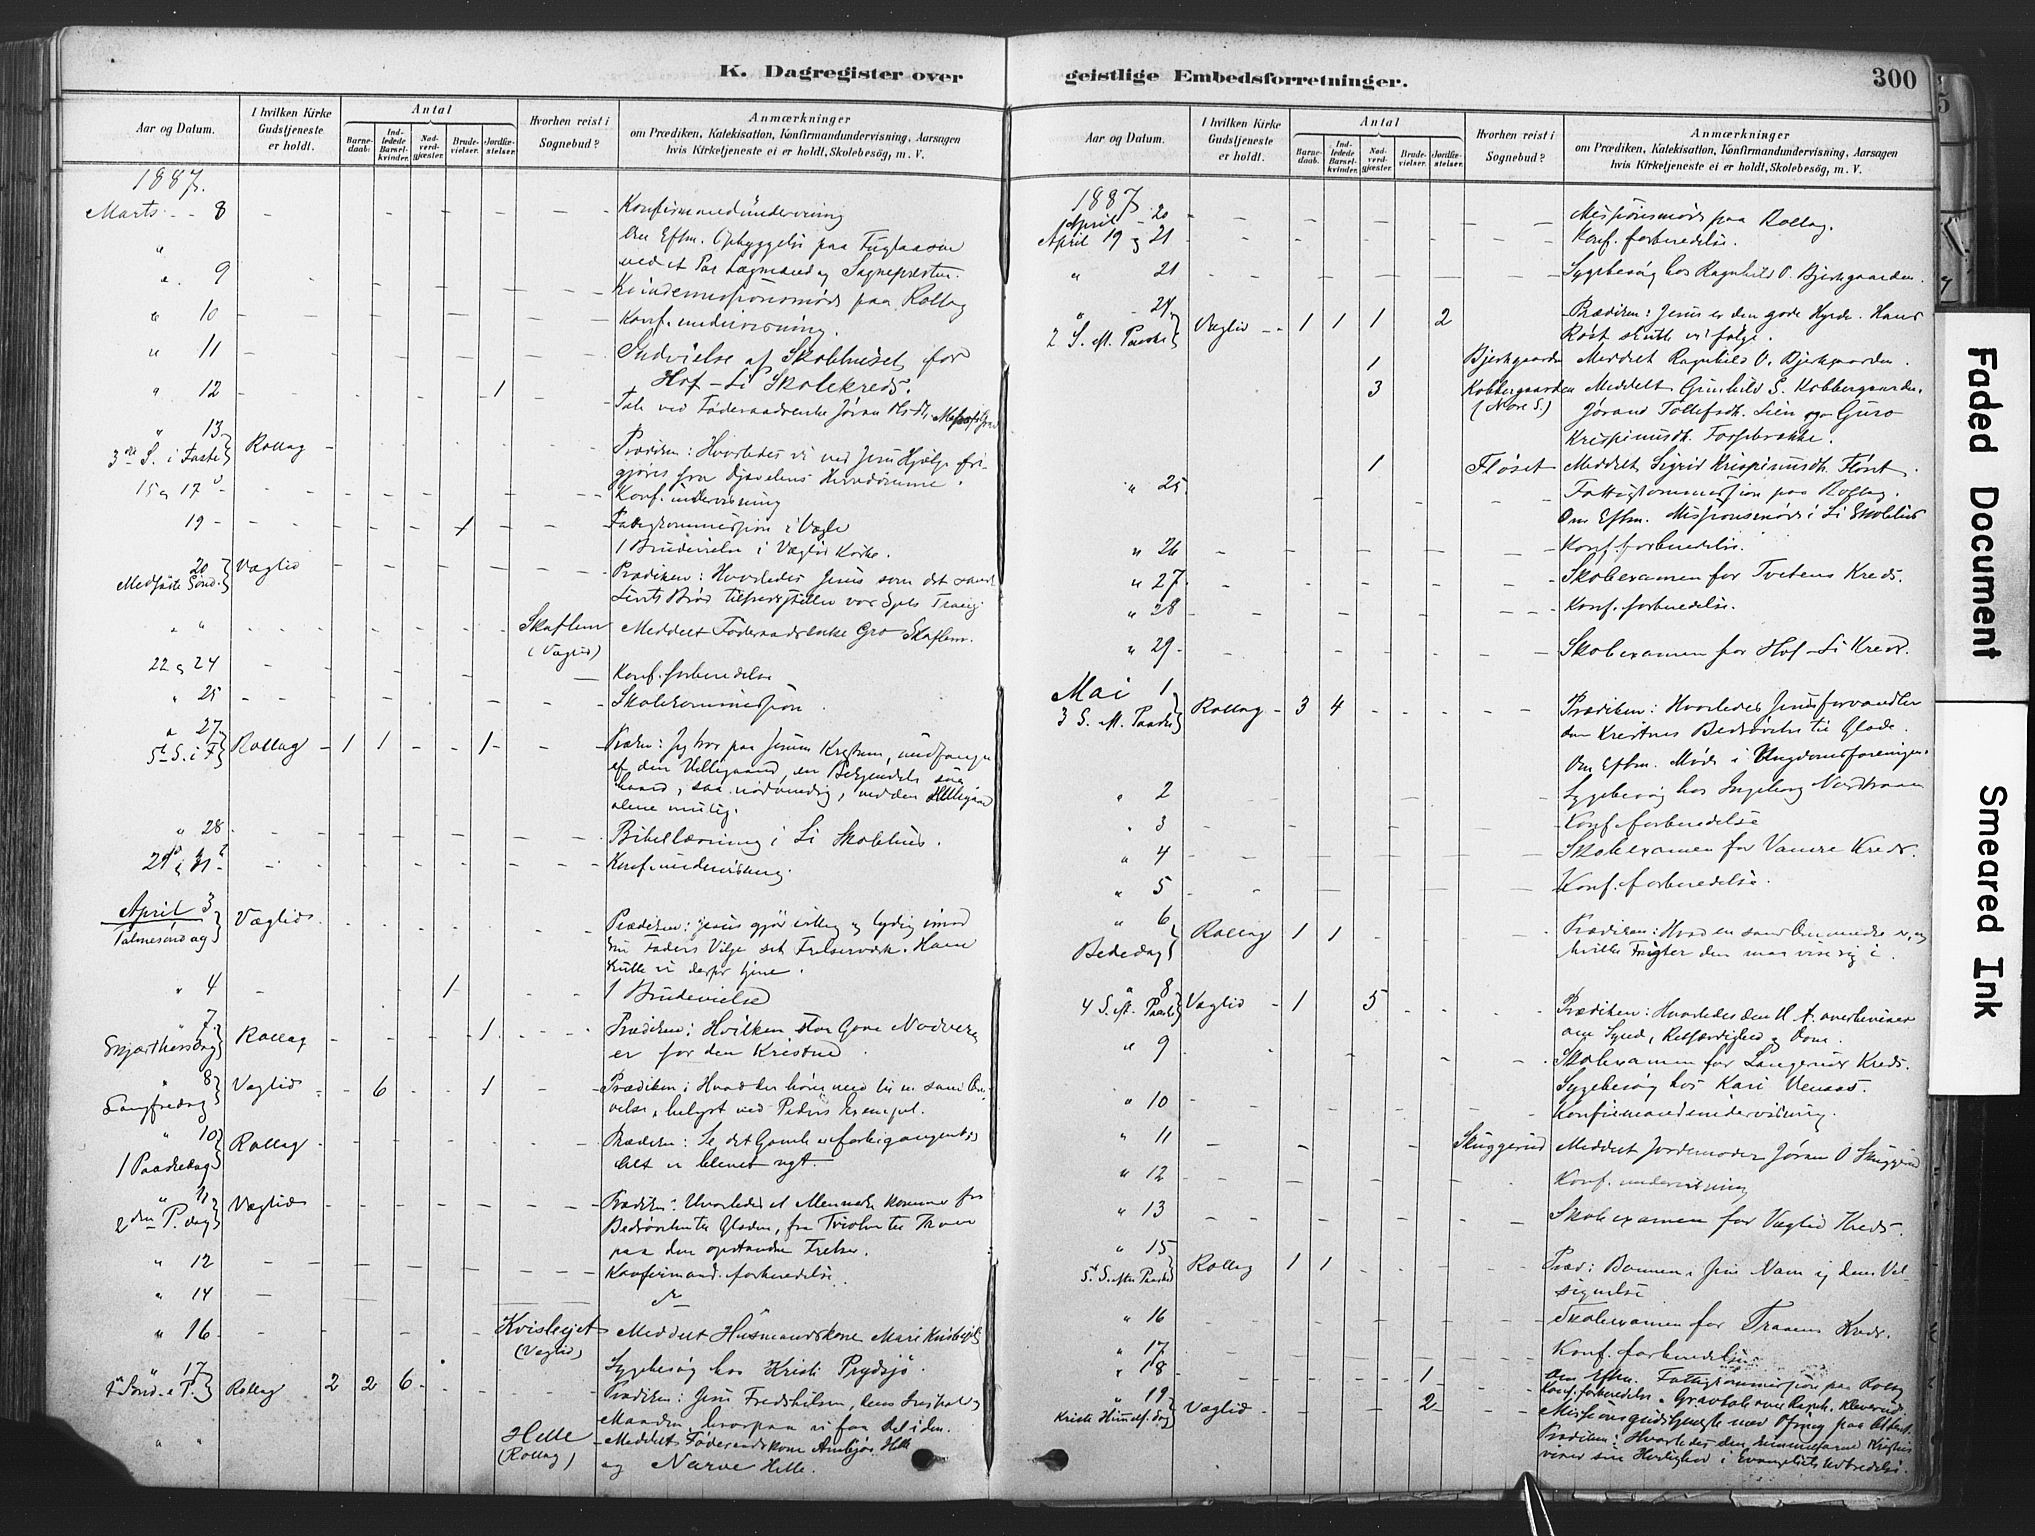 K. Dagregister over
geistlige Embedsforretninger.
300
Aar og Datum.
I hvilken Kirke Gudstjeneste er holdt.
Antal
Barne-daab.
Ind-ledede Barsel-kvinder.
Nad-verd-gjæster.
Brude-vielser.
Jordfæ-stelser.
Hvorhen reist i Sognebud?
Anmærkninger
om Prædiken, Katekisation, Konfirmandundervisning, Aarsagen
hvis Kirketjeneste ei er holdt, Skolebesög, m. V.
1887.
Marts - - 8 Konfirmandundervisning
" Om Eftm. Opbyggelse paa
ved et Par Lægmænd og Sognepresten.
" 9 Kvindemissionsmøde paa Rollag
" 10 Konf. undervisning.
" 11 Indvielse af Skolehuset for
Hof-Li Skolekreds.
" 12 1 Tale ved Føderaadsenke Jøran
" 13
3die S. i Faste Rollag Prædiken: Hvorledes vi ved Jesu Hjælp fri-
gjøres fra Djævelens Herredømme.
15 og 17 Konf. undervisning
19 1 Fattigkommission i Vægli
1 Brudevielse i Væglid Kirke.
20
Midfaste Sönd. Væglid Prædiken: Hvorledes Jesus som det sande
Livets Brød tilfredsstiller vor Sjels Trang
" " Skaflem Meddelt Føderaadsenke Gro Skaflem.
(Væglid)
22 og 24 Konf. forberedelse
" 25 Skolekommission.
" 27
5te S. i F. Rollag 1 1 1 Præken: Jeg tror paa Jesum Kristum, undfangen
af den Helligaand, en Bekjendelse
alene mulig.
" 28 Bibellæsning i Li Skolehus.
29 og 31 Konf. undervisning.
April 3
Palmesøndag Væglid Prædiken: Jesus gjør villig og lydig imod
sin Faders Vilje sit Frelserværk. Ham
skulle vi derfor tjene.
" 4 1 1 Brudevielse
" 7
Skjærthorsdag Rollag 1 Prædiken: Hvilken stor Gave Nadveren
er for den Kristne.
" 8
Langfredag Væglid 6 1 Prædiken: Hvad der hører med til en sand
belyst ved Peders Exempel.
" 10
1 Paaskedag Rollag Prædiken: Se det Gamle er forbigangent,
Alt er blevet nyt.
" 11
2den P. dag Væglid Prædiken: Hvorledes et Menneske kommer fra
Bedrøvelse til Glæden, fra Tvivlen til Troen
paa den opstandne Frelser.
" 12 Konfirmand. forberedelse.
" 14
" 16 Meddelt Husmandskone Mari
(Væglid)
Sygebesøg hos Kristi
" 17
1ste Sönd. e. P. Rollag 2 2 6 Prædiken: Jesu Fredshilsen,
hvorpaa vi faa Del i den.
" " Helle Meddelt Føderaadskone Helle
(Rollag) og Narve Helle.
Aar og Datum.
I hvilken Kirke Gudstjeneste er holdt.
Antal
Barne-daab.
Ind-ledede Barsel-kvinder.
Nad-verd-gjæster.
Brude-vielser.
Jordfæ-stelser.
Hvorhen reist i Sognebud?
Anmærkninger
om Prædiken, Katekisation, Konfirmandundervisning, Aarsagen
hvis Kirketjeneste ei er holdt, Skolebesög, m. V.
1887.
April - 20 Missionsmøde paa Rollag.
April 19 og 21 Konf. forberedelse.
" 21 Sygebesøg hos Ragnhild O. Bjerkgaarden.
" 24
2 S. eft. Paaske Væglid 1 1 1 2 Prædiken: Jesus er den gode Hyrde. Hans
Røst skulle vi følge.
1 Bjerkgaarden Meddelt Ragnhild O. Bjerkgaarden.
3 Kobbergaarden Meddelt Gunhild S. Kobbergaarden,
(Nore S.) Jørand Tollefsdt. Lien og Guro
Krispinusdt.
1 Fløset Meddelt Sigrid Krispinusdt. Fløset.
" 25 Fattigkommission paa Rollag.
Om Eftm. Missionsmøde i Li Skolehus
" 26 Konf. forberedelse.
" 27 Skolexamen for Tvetens Kreds.
" 28 Konf. forberedelse.
" 29 Skolexamen for Hof-Li Kreds.
Mai 1
3 S. eft. Paaske Rollag 3 4 Prædiken: Hvorledes Jesus forvandler
den Kristnes Bedrøvelse til Glæde.
Om Eftm. Møde i Ungdomsforeningen.
" 2 Sygebesøg hos Ingeborg
" 3 Konf. forberedelse
" 4 Skolexamen for Vamre Kreds.
" 5 Konf. forberedelse.
" 6
Bededag Rollag 1 1 Prædiken: Hvad en sand Omvendelse er, og
hvilke Frugter den maa vise sig i.
" 8
4 S. eft. Paaske Væglid 1 5 Prædiken: Hvorledes den H. A. overbeviser
om Synd, Retfærdighed og Dom.
" 9 Skolexamen for Langeruds Kreds.
Sygebesøg hos Kari Venaas.
" 10 Konfirmandundervisning.
" 11 Skuggerud Meddelt Jordemoder Jøran O Skuggerud
" 12 Konf. undervisning
" 13 Skolexamen for Væglid Kreds.
" 15
5te S. efter Paaske Rollag 1 1 Præd: Bønnen i Jesu Navn og dens Vel-
signelse
" 16 Skolexamen for Traaens Kreds.
" 17 Konf. forberedelse
" 18 1 Om Eftm. Fattigkommission paa Rollag
Konf. forberedelse.
" 19
Kristi Himmelf. dag Væglid 2 Missionsgudstjeneste med Ofring paa Alteret.
Prædiken: Hvorledes den himmelfarne Kristus
viser sin Herlighed i Evangeliets Udbredelse.
Faded Document
Smeared Ink